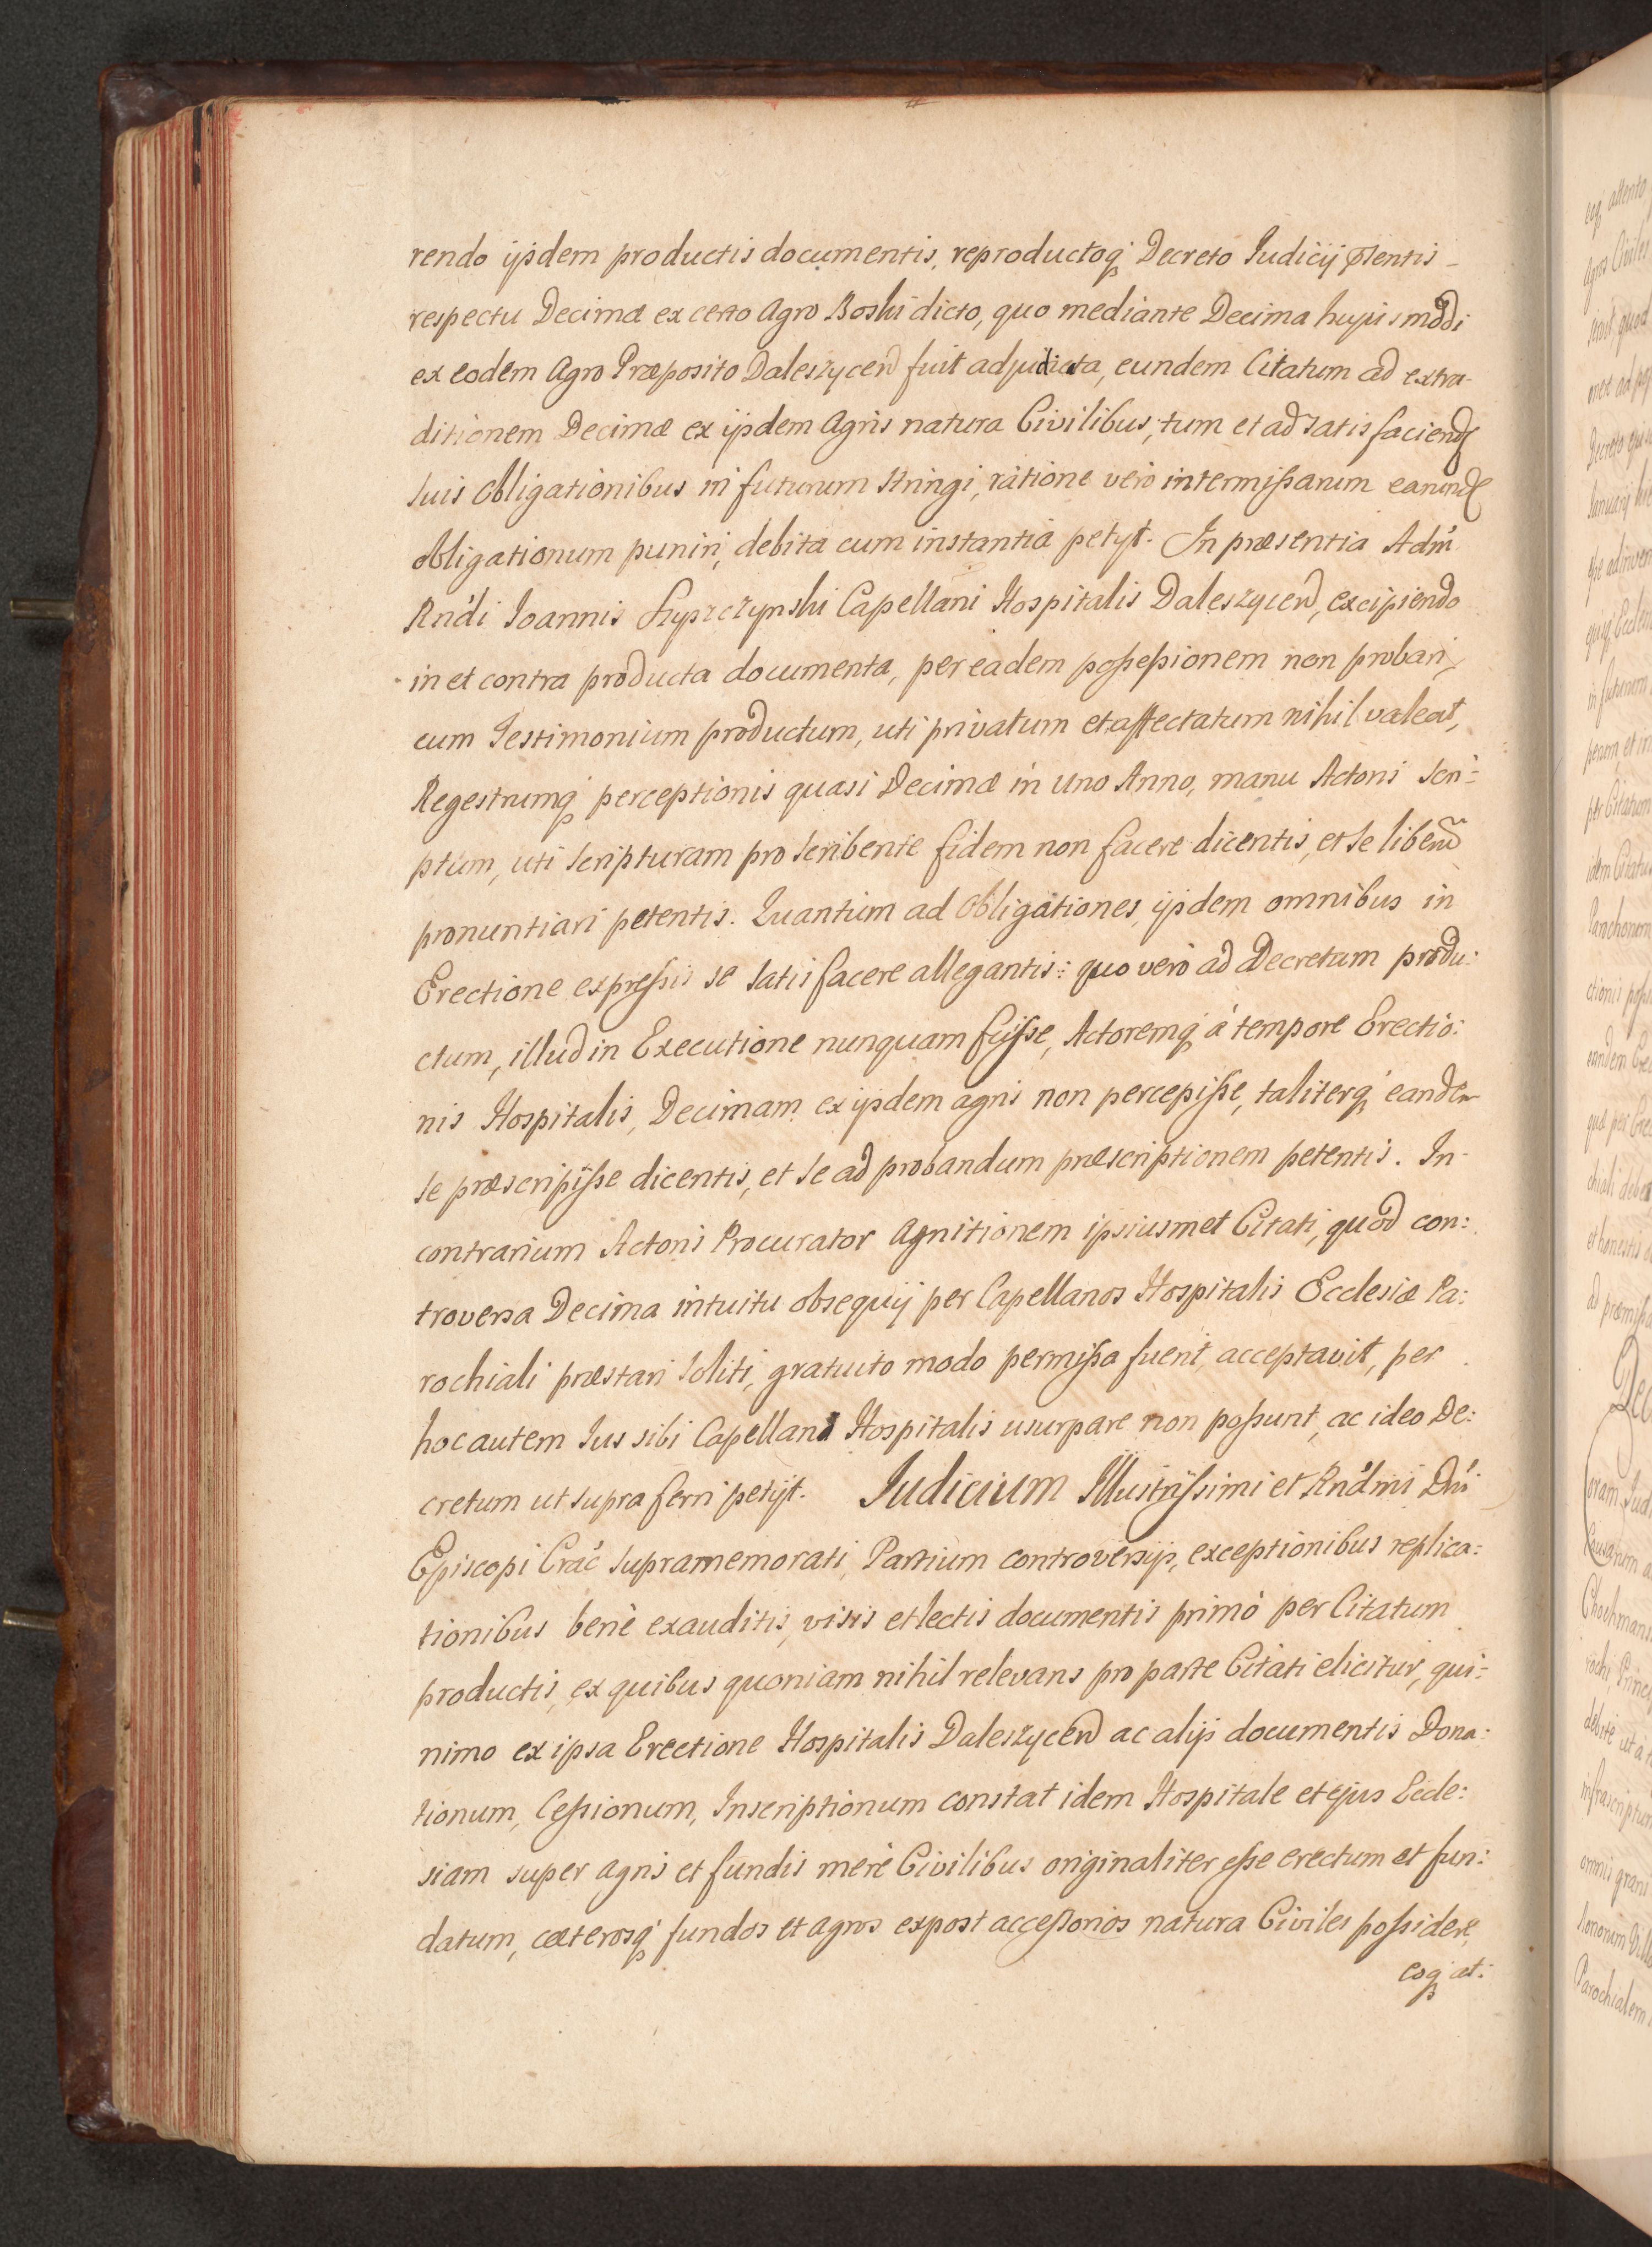 rendo ijsdem productis documentis, reproductoq́ Decreto Iudicij pſentis
respectu Decimæ ex certo Agro Boski dicto, quo mediante Decima hujusmodi
ex eodem Agro Præposito Daleszycen̄ fuit adjudicata, eundem Citatum ad extra-
ditionem Decimæ ex ijsdem Agris natura Civilibus, tum et ad satisfaciend̄
suis obligationibus in futurum stringi, ratione vero intermissarum earund̄
obligationum puniri, debita cum instantia petijt. In præsentia Adm̄
Rńdi Ioannis Capellani Hospitalis Daleszycen̄, excipiendo
in et contra producta documenta, per eadem possessionem non probari,
cum Testimonium productum, uti privatum et affectatum nihil valeat,
Regestrumq́ perceptionis quasi Decimæ in uno Anno, manu Actoris scri:
ptum, uti scripturam pro scribente fidem non facere dicentis, et se liberū
pronuntiari petentis. Quantum ad Obligationes, ijsdem omnibus in
Erectione expressis se satisfacere allegantis: quo verò ad Decretum produ:
ctum, illud in Executione nunquam fuisse, Actoremq́ à tempore Erectio:
nis Hospitalis, Decimam ex ijsdem agris non percepisse, taliterq́ eandem
se præscripsisse dicentis, et se ad probandum præscriptionem petentis. In
contrarium Actoris Procurator Agnitionem ipsiusmet Citati, quod con:
troversa Decima intuitu obsequij per Capellanos Hospitalis Ecclesiæ Pa:
rochiali præstari soliti, gratuito modo permissa fuerit, acceptavit, per
hoc autem Ius sibi Capellani Hospitalis usurpare non possunt, ac ideo De:
cretum ut supra ferri petijt. Iudicium Illustrissimi et Rńdmi Dńi
Episcopi Crac̄ supramemorati, Partium controversijs, exceptionibus replica:
tionibus benè exauditis, visis et lectis documentis primò per Citatum
productis, ex quibus quoniam nihil relevans pro parte Citati elicitur, qui:
nimo ex ipsa Erectione Hospitalis Daleszycen̄ ac alijs documentis Dona:
tionum, Cessionum, Inscriptionum constat idem Hospitale et ejus Eccle:
siam super agris et fundis merè Civilibus originaliter esse erectum et fun:
datum, cæterosq́ fundos et agros expost accessorios natura Civiles possidere,
eoq́ at: